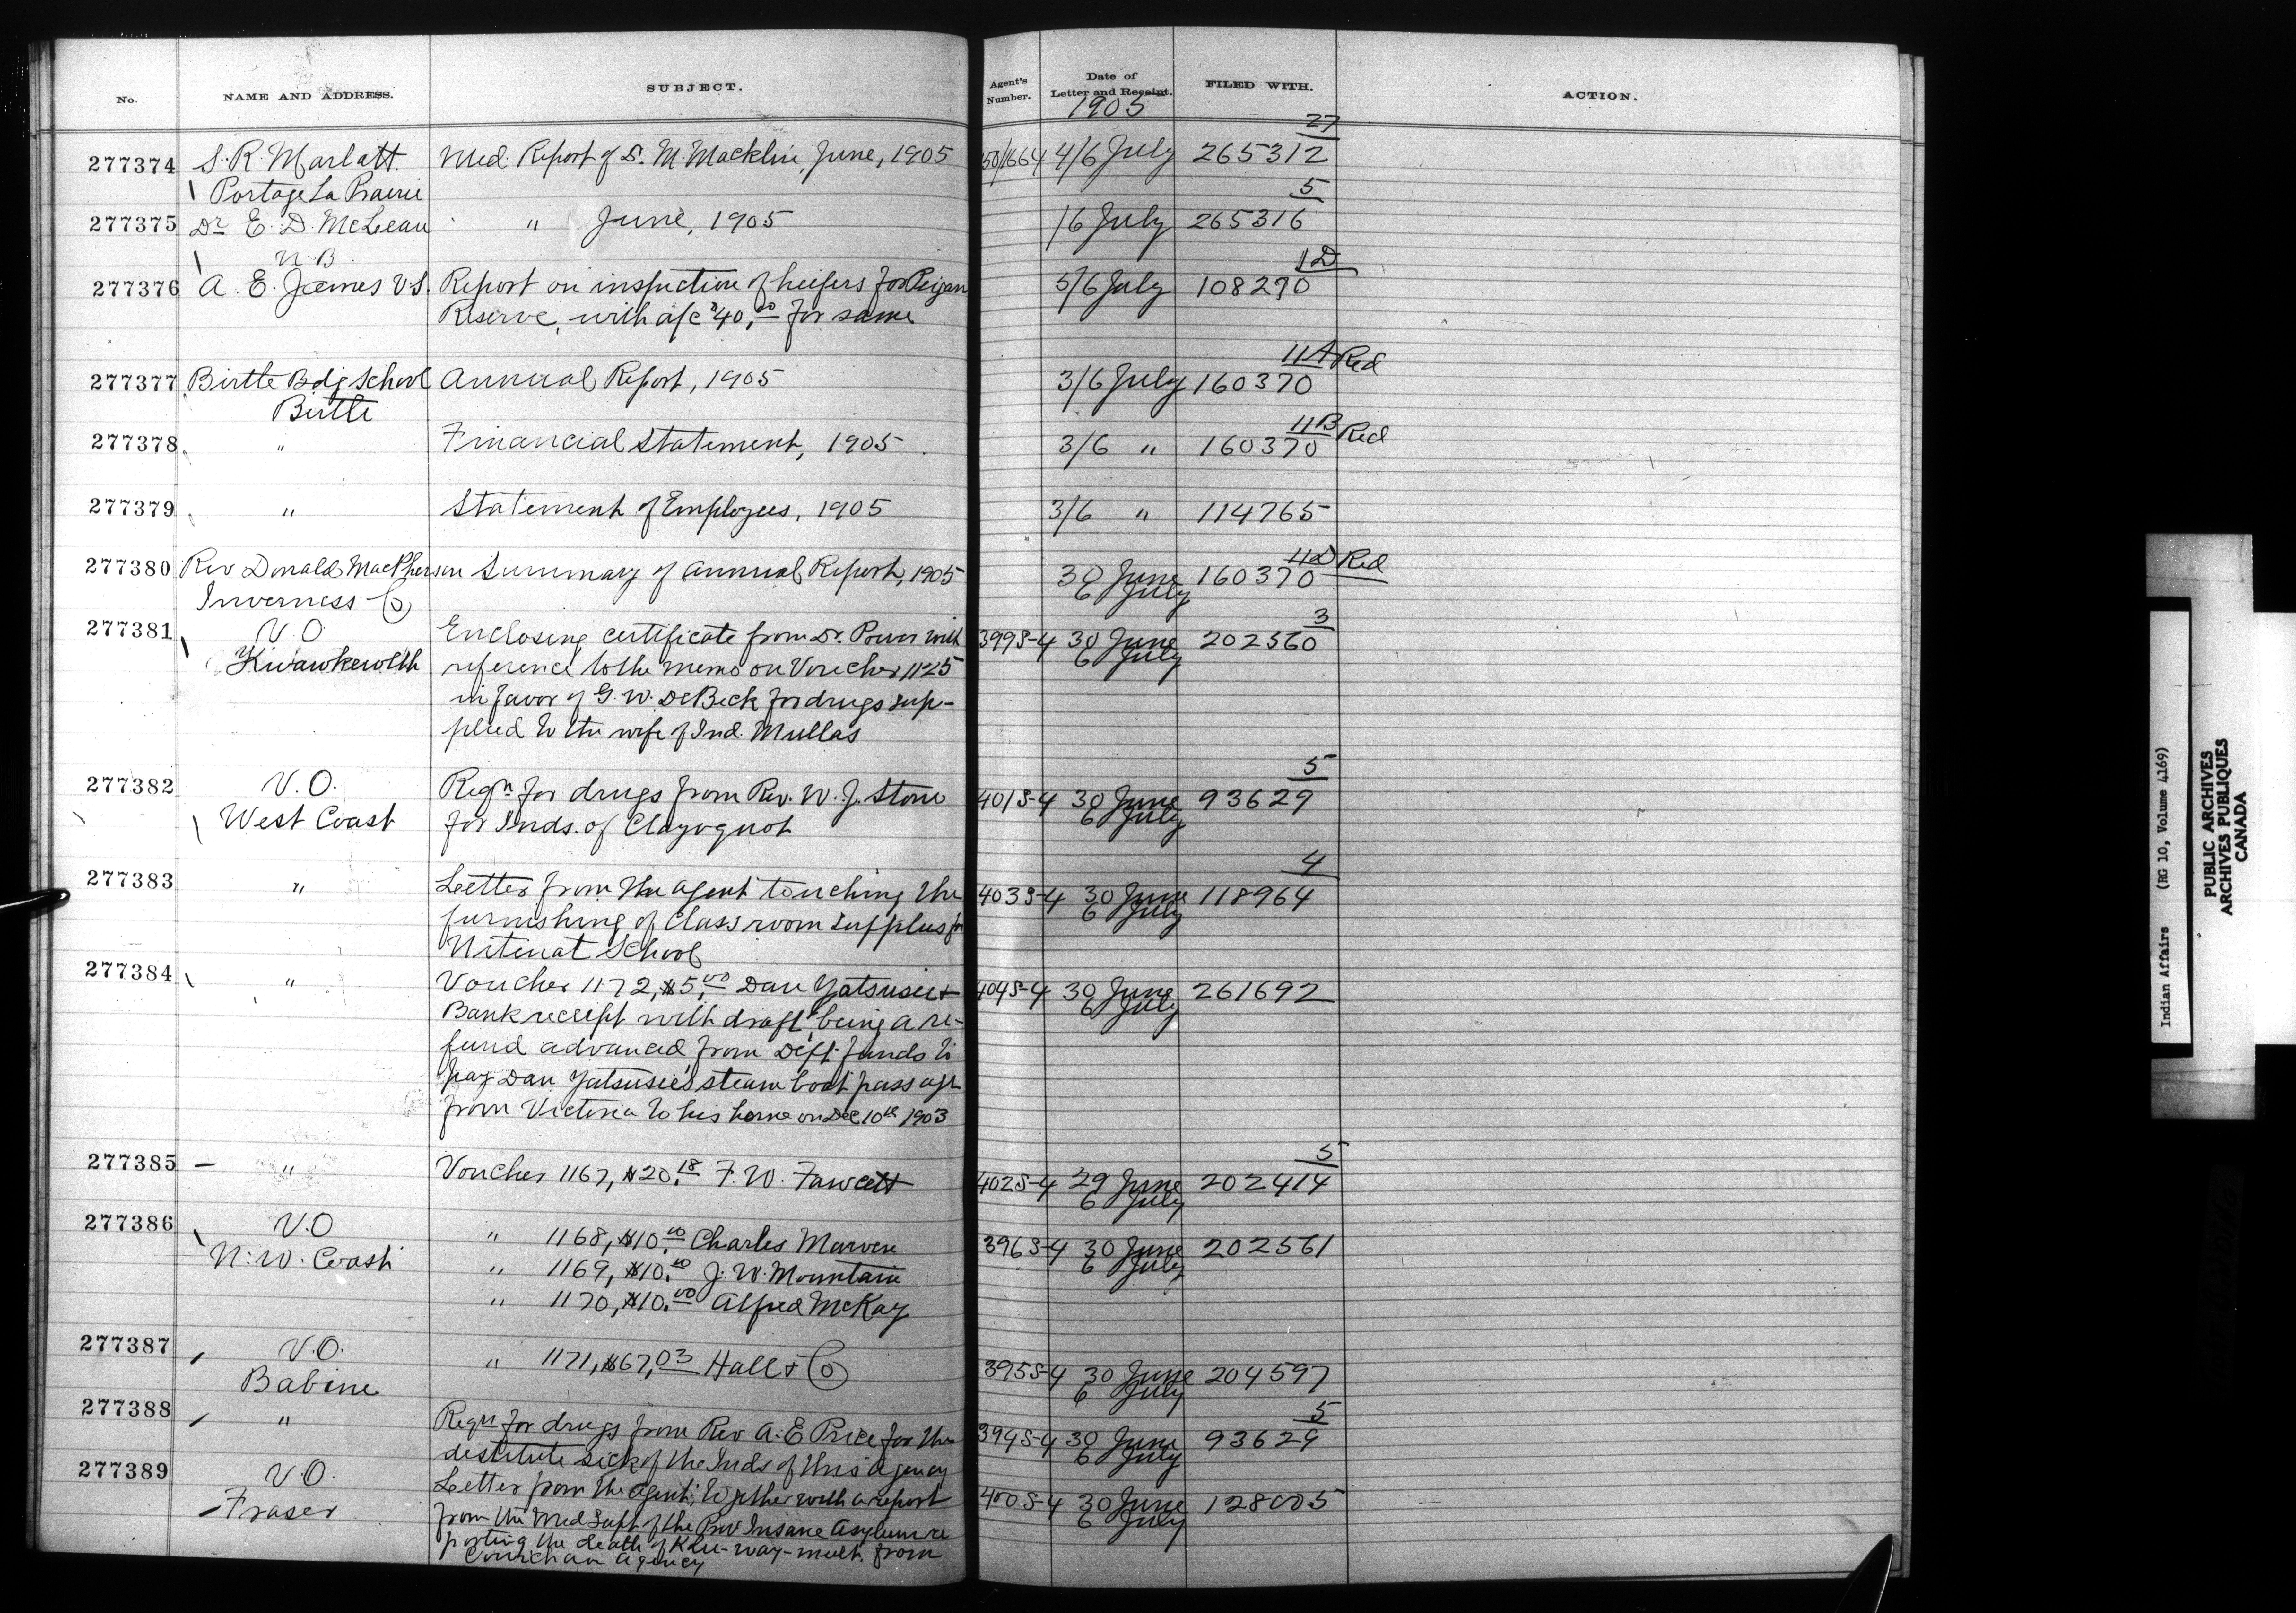 No. NAME AND ADDRESS. SUBJECT. Agent's Number. Date of Letter and Receipt. FILED WITH. ACTION.
1905
27
277374 S. R. Marlatt. Med. Report of S. M. Macklin, June, 1905 50/1664 4/6 July 265312
Portage La Prairie
5
277375 Dr E. D. McLean " June, 1905 /6 July 265316
N. B.
1D
277376 A. E. James V.S. Report on inspection of heifers for Peigan 5/6 July 108290
Reserve, with a/c $40.00 for same
11A Red
277377 Birtle Bdg School Annual Report, 1905 3/6 July 160370
Birtle
11B Red
277378 " Financial Statement, 1905 3/6 " 160370
277379 " Statement of Employees, 1905 3/6 " 114765
11D Red
277380 Rev Donald MacPherson Summary of Annual Report, 1905 30 June 160370
Inverness Co 6 July
3
277381 V.O. Enclosing certificate from Dr. Power with 399S-4 30 June 202560
Kwawkewlth reference to the memo on Voucher 1125 6 July
in favor of G. W. DeBeck for drugs sup-
plied to the wife of Ind. Mullas
5
277382 V.O. Reqn for drugs from Rev. W. J. Stone 401S-4 30 June 93629
West Coast for Inds. of Clayoquot 6 July
4
277383 " Letter from the agent touching the 403S-4 30 June 118964
furnishing of Class room supplies for 6 July
Nitinat School
277384 " Voucher 1172, $5.00 Dan Yatsusie + 404S-4 30 June 261692
Bank receipt with draft being a re- 6 July
fund advanced from Dept. funds to
pay Dan Yatsusie's steam boat passage
from Victoria to his home on Dec 10th 1903
5
277385 " Voucher 1167, $20.18 F. W. Fawcett 402S-4 29 June 202414
6 July
277386 V.O " 1168, $10.00 Charles 396S-4 30 June 202561
N. W. Coast " 1169, $10.00 J. W. Mountain 6 July
" 1170, $10.00 Alfred McKay
277387 V.O. " 1171, $67,03 Hall & Co 395S-4 30 June 204597
Babine 6 July
5
277388 " Reqn for drugs from Rev A. E. Price for the 394S-4 30 June 93629
destitute sick of the Inds of this agency 6 July
277389 V.O. Letter from the agent, together with a report 400S-4 30 June 128005
Fraser from the Med Supt of the Prov Insane Asylum re 6 July
porting the death of Klu-way-mult. from
Cowichan agency
Indian Affairs (RG 10, Volume 4169)
PUBLIC ARCHIVES
ARCHIVES PUBLIQUES
CANADA